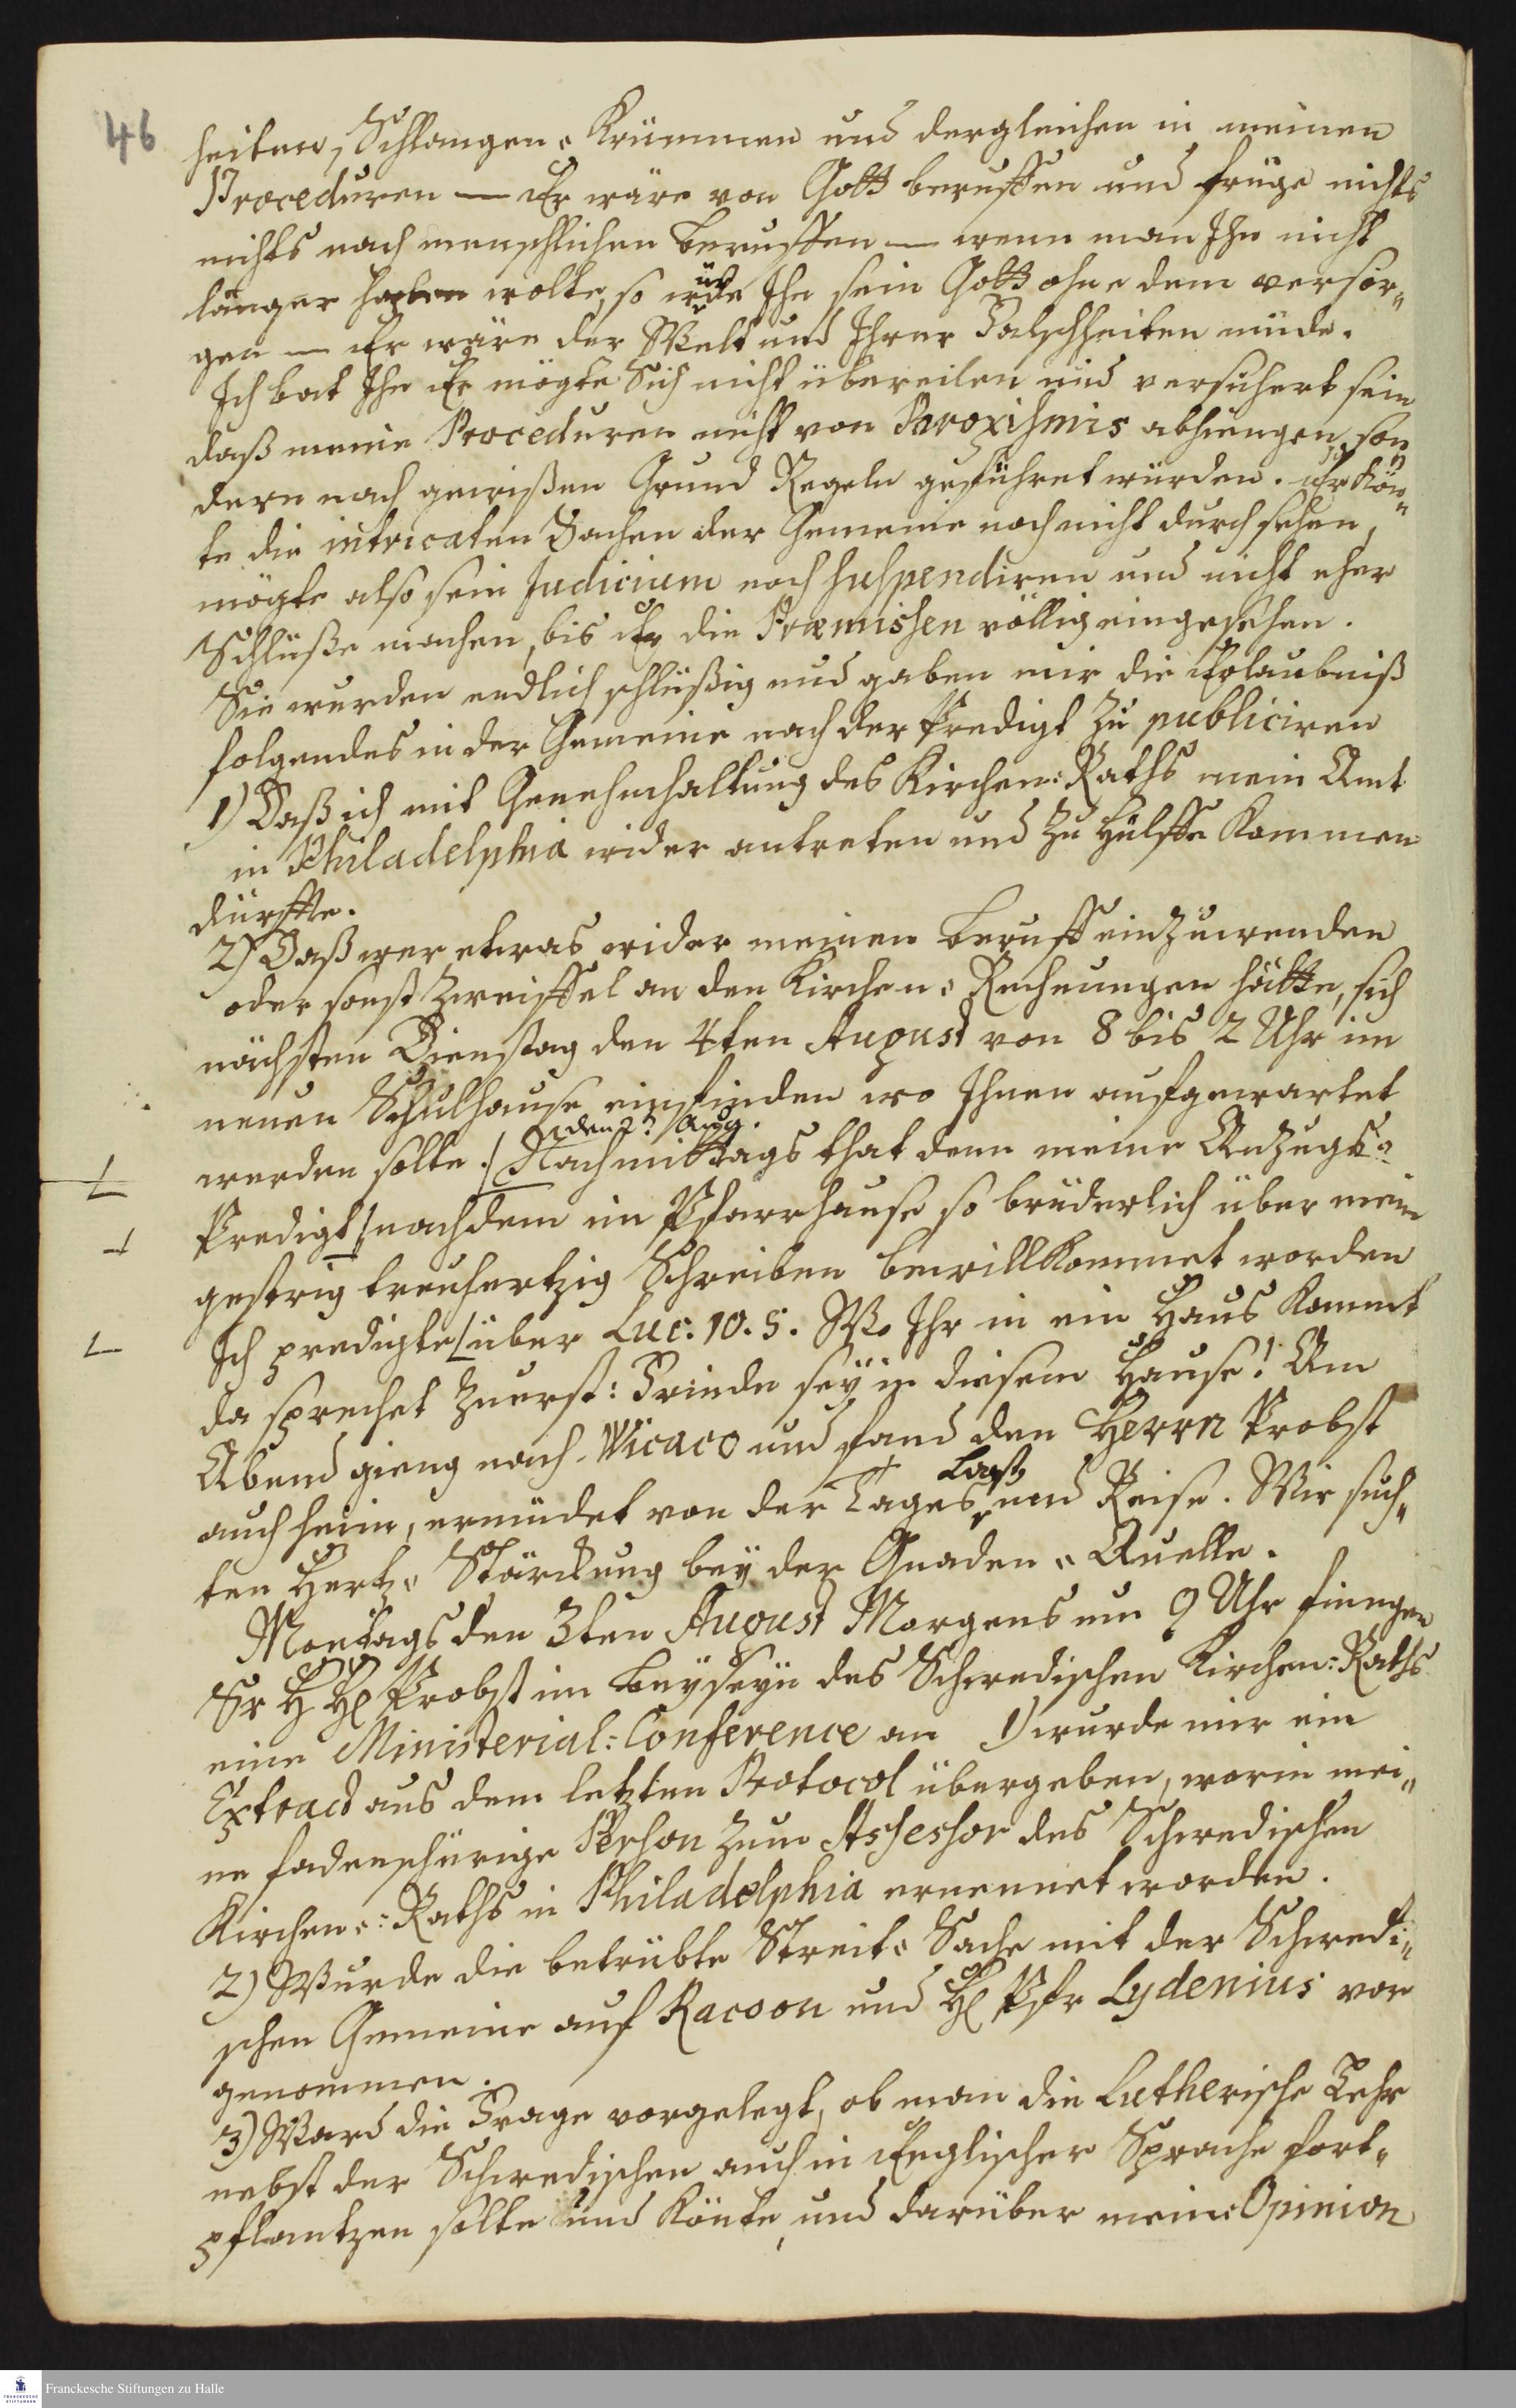 46
heiten, Schlangen-Krümmen und dergleichen in meinen
Proceduren — Er wäre von Gott beruffen und früge nichts
nichts nach menschlichen Beruffen — wenn man Ihn nicht
länger haben wolte, so würde Ihn sein Gott ohne dem versor-
gen — Er wäre der Welt und Ihrer Falschheiten müde.
Ich bat Ihn Er mögte Sich nicht übereilen und versichert sein
daß meine Proceduren nicht von Paroxismis abhiengen, son
dern nach gewißen Grund Regeln geführet würden. Er kön-
te die intricaten Sachen der Gemeine noch nicht durchsehen,
mögte also sein Judicium noch suspendiren und nicht eher
Schlüße machen, bis Er die Præmissen völlig eingesehen.
Sie wurden endlich schlüßig und gaben mir die Erlaubniß
folgendes in der Gemeine nach der Predigt zu publiciren
1) Daß ich mit Genehmhaltung des Kirchen-Raths mein Amt
in Philadelphia wider antreten und zu Hülffe kommen
dürffte.
2) Daß wer etwas wider meinen Beruff einzuwenden
oder sonst Zweiffel an den Kirchen-Rechnungen hätte, sich
nächsten Dienstag den 4ten August von 8 bis 2 Uhr im
neuen Schulhause einfinden wo Ihnen aufgewartet
den 2t Aug.
werden solte. Nachmittags that denn meine Anzugs-
Predigt nachdem im Pfarrhause so brüderlich über mein
gestrig treuhertzig Schreiben bewillkommet worden
Ich predigte über Luc: 10. 5. Wo Ihr in ein Haus kommt
da sprechet zuerst: Friede seÿ in diesem Hause! Am
Abend gieng nach Wicaco und fand den Herrn Probst
auch heim, ermüdet von der Tages Last und Reise. Wir such-
ten Hertz-Stärckung beÿ der Gnaden-Quelle.
Montags den 3ten August Morgens um 9 Uhr fiengen
Sr H H Probst im Beÿseÿn des Schwedischen Kirchen-Raths
eine Ministerial-Conference an 1) wurde mir ein
Extract aus dem letzten Protocol übergeben, worin mei-
ne fadenschürige Person zum Assessor des Schwedischen
Kirchen-Raths in Philadelphia ernennet worden.
2) Wurde die betrübte Streit-Sache mit der Schwedi-
schen Gemeine auf Racoon und H Pfr Lydenius vor
genommen.
3) Ward die Frage vorgelegt, ob man die Lutherische Lehr
nebst der Schwedischen auch in Englischer Sprache fort-
pflantzen solte und könte, und darüber meine Opinion
Franckesche Stiftungen zu Halle